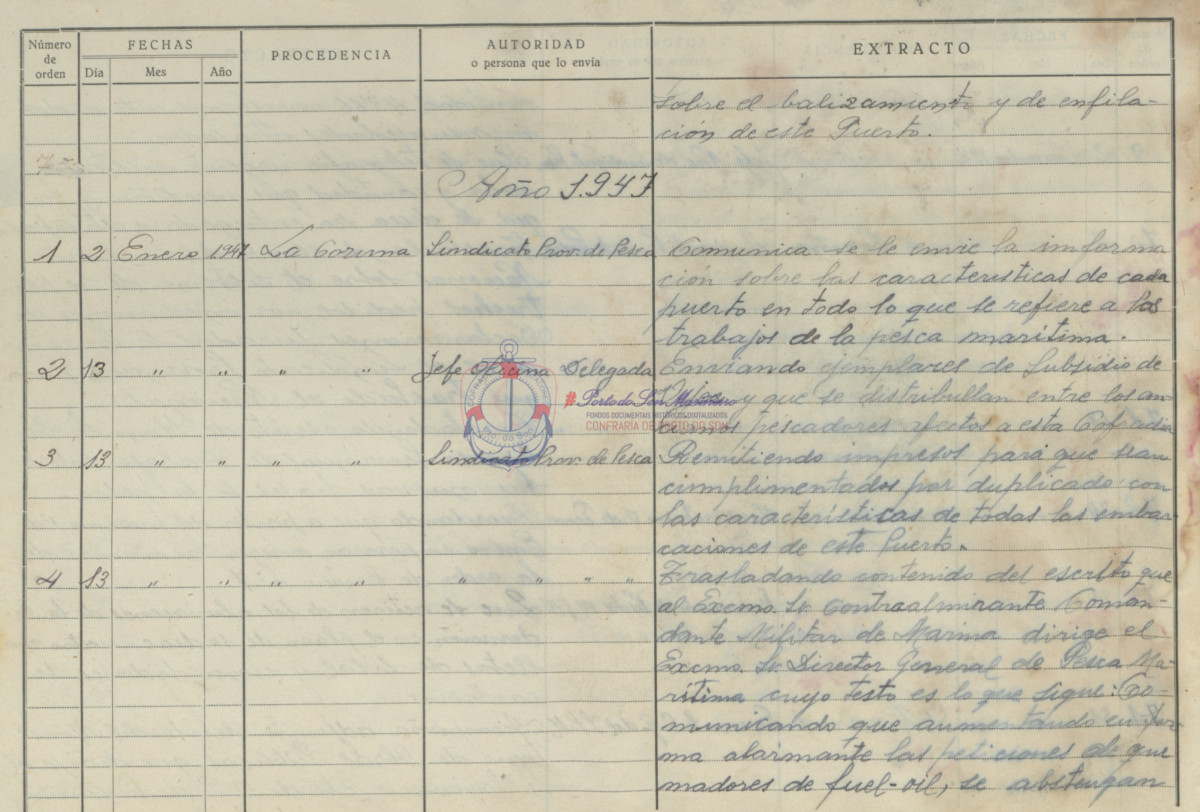 Número de orden
FECHAS
Día Mes Año
PROCEDENCIA
AUTORIDAD
o persona que lo envía
EXTRACTO
sobre el balizamiento y de enfila-
ción de este Puerto.
Año 1.947
1 2 Enero 1947 La Coruna Sindicato Prov. de Pesca Comunica se le envie la informa
ción sobre las caracteristicas de cada
puerto en todo lo que se refiere a los
trabajos de la pesca marítima.
2 13 " " " " Jefe Oficina Delegada Enviando ejemplares de Subsidio de
y que se distribullan entre los an
cianos pescadores afectos a esta Cofradia
3 13 " " " " Sindicato Prov. de Pesca Remitiendo impresos para que sean
cumplimentados por duplicado con
las características de todas las embar
caciones de este Puerto.
4 13 " " " " " " " " Trasladando contenido del escrito que
al Excmo. Sr. Contraalmirante Coman-
dante Militar de Marina dirige el
Excmo. Sr. Director General de Pesca Ma-
rítima cuyo testo es lo que sigue: Co-
municando que aumentando en for-
ma alarmante las peticiones de que
madores de fuel-oil, se abstengan
#PortodoSonMariñeiro
FONDOS DOCUMENTAIS HISTÓRICOS DIGITALIZADOS
CONFRARÍA DE PORTO DO SON